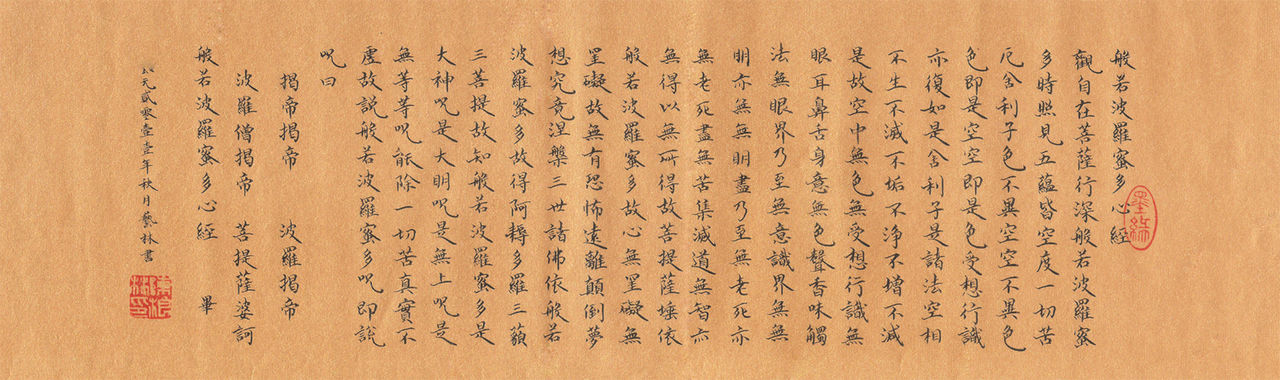 般若波羅蜜多心經
觀自在菩薩行深般若波羅蜜
多時照見五蘊皆空度一切苦
厄舍利子色不異空空不異色
色即是空空即是色受想行識
亦復如是舍利子是諸法空相
不生不滅不垢不淨不增不減
是故空中無色無受想行識無
眼耳鼻舌身意無色聲香味觸
法無眼界乃至無意識界無無
明亦無無明盡乃至無老死亦
無老死盡無苦集滅道無智亦
無得以無所得故菩提薩埵依
般若波羅蜜多故心無罣礙無
罣礙故無有恐怖遠離顛倒夢
想究竟涅槃三世諸佛依般若
波羅蜜多故得阿耨多羅三藐
三菩提故知般若波羅蜜多是
大神咒是大明咒是無上咒是
無等等咒能除一切苦真實不
虛故説般若波羅蜜多咒即説
咒曰
揭帝揭帝 波羅揭帝
波羅僧揭帝 菩提薩婆訶
般若波羅蜜多心經 畢
公元貳零壹壹年秋月藝林書